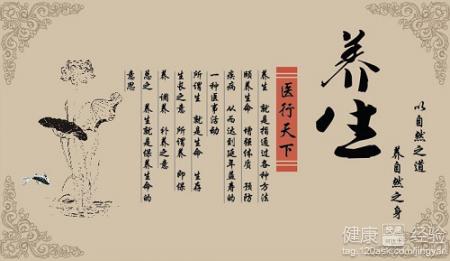 养生
以自然之道
养自然之身
医行天下
养生 就是指通过各种方法
颐养生命 增强体质 预防
疾病 从而达到延年益寿的
一种医事活动
所谓生 就是生命 生存
生长之意 所谓养 即保
养 调养 补养之意
总之 养生就是保养生命的
意思
健康 经验
tag.120ask.com/jingyan